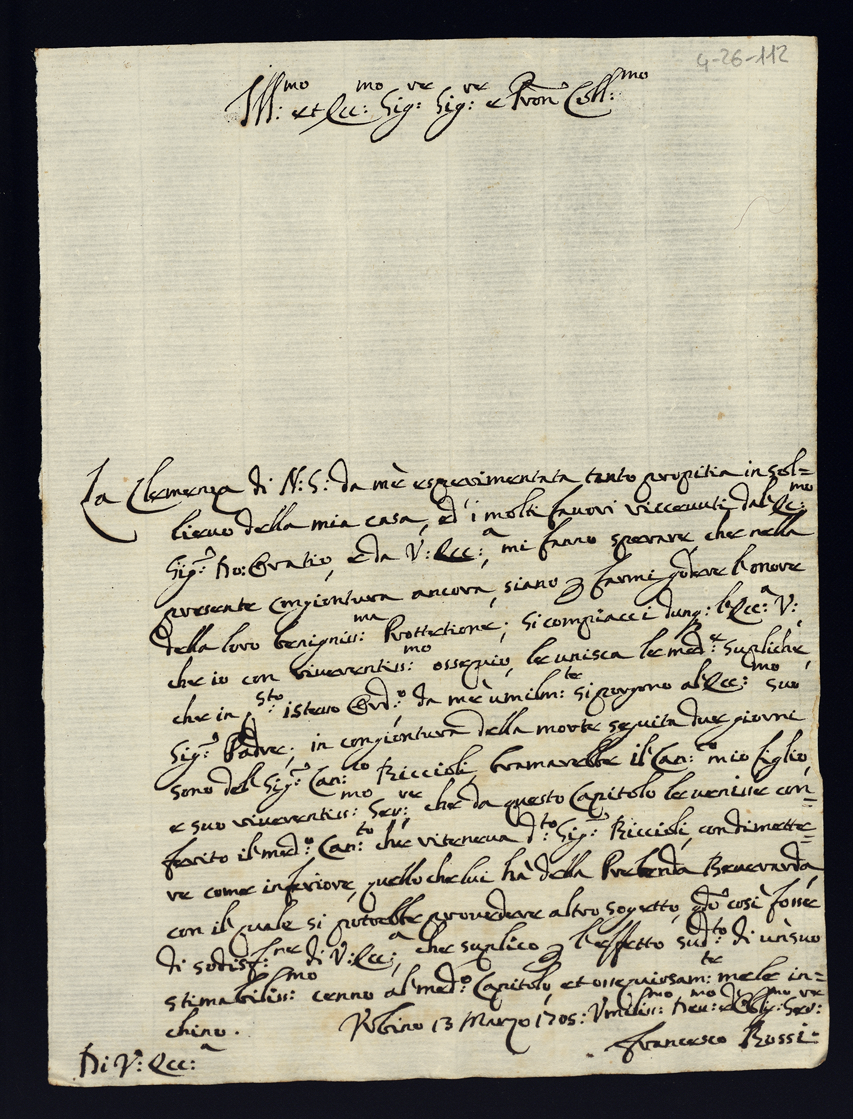 4-26-112
Ill:mo et Ecc:mo Sig:re Sig:re e Pron Coll:mo
La Clemenza di N: S: da mè esperimentata tanto propitia in sol=
lievo della mia casa, ed i molti favori riccevuti dal Ec:mo
Sig:r Do: Oratio, e da V: Ecc:a, mi fanno sperare che nella
presente congiontura ancora, siano p farmi godere l'onore
della loro benigniss:ma Protettione; si compiacci dunq: l'Ecc:a V:
che io con riverentiss:mo ossequio, le unisca le med:e supliche,
che in p:sto istesso Ord:o da mè umilm:te si porgono al Ecc:mo suo
Sig:r Padre; in congiontura della morte seguita due giorni
sono del Sig:r Can:co Riccioli bramarebbe il Can:co mio figlio,
e suo riverentiss:mo Ser:re, che da questo Capitolo le venisse con=
ferito il med:o Can:to che riteneva d:to Sig:r Riccioli, con dimette=
re come inferiore, quello che lui hà della Prebenda Beverarda,
con il quale si potrebbe provedere altro sogetto, qdo così fosse
di sodisf:ne di V: Ecc:a, che suplico p l'effetto sud:to di un suo
stimabiliss:mo cenno al med:o Capitolo, et ossequiosam:te me le in=
chino.
Urbino 13 Marzo 1705: Umiliss:mo Dev:mo et Oblig:mo Ser:re
Di V: Ecc:a
Francesco Rossi